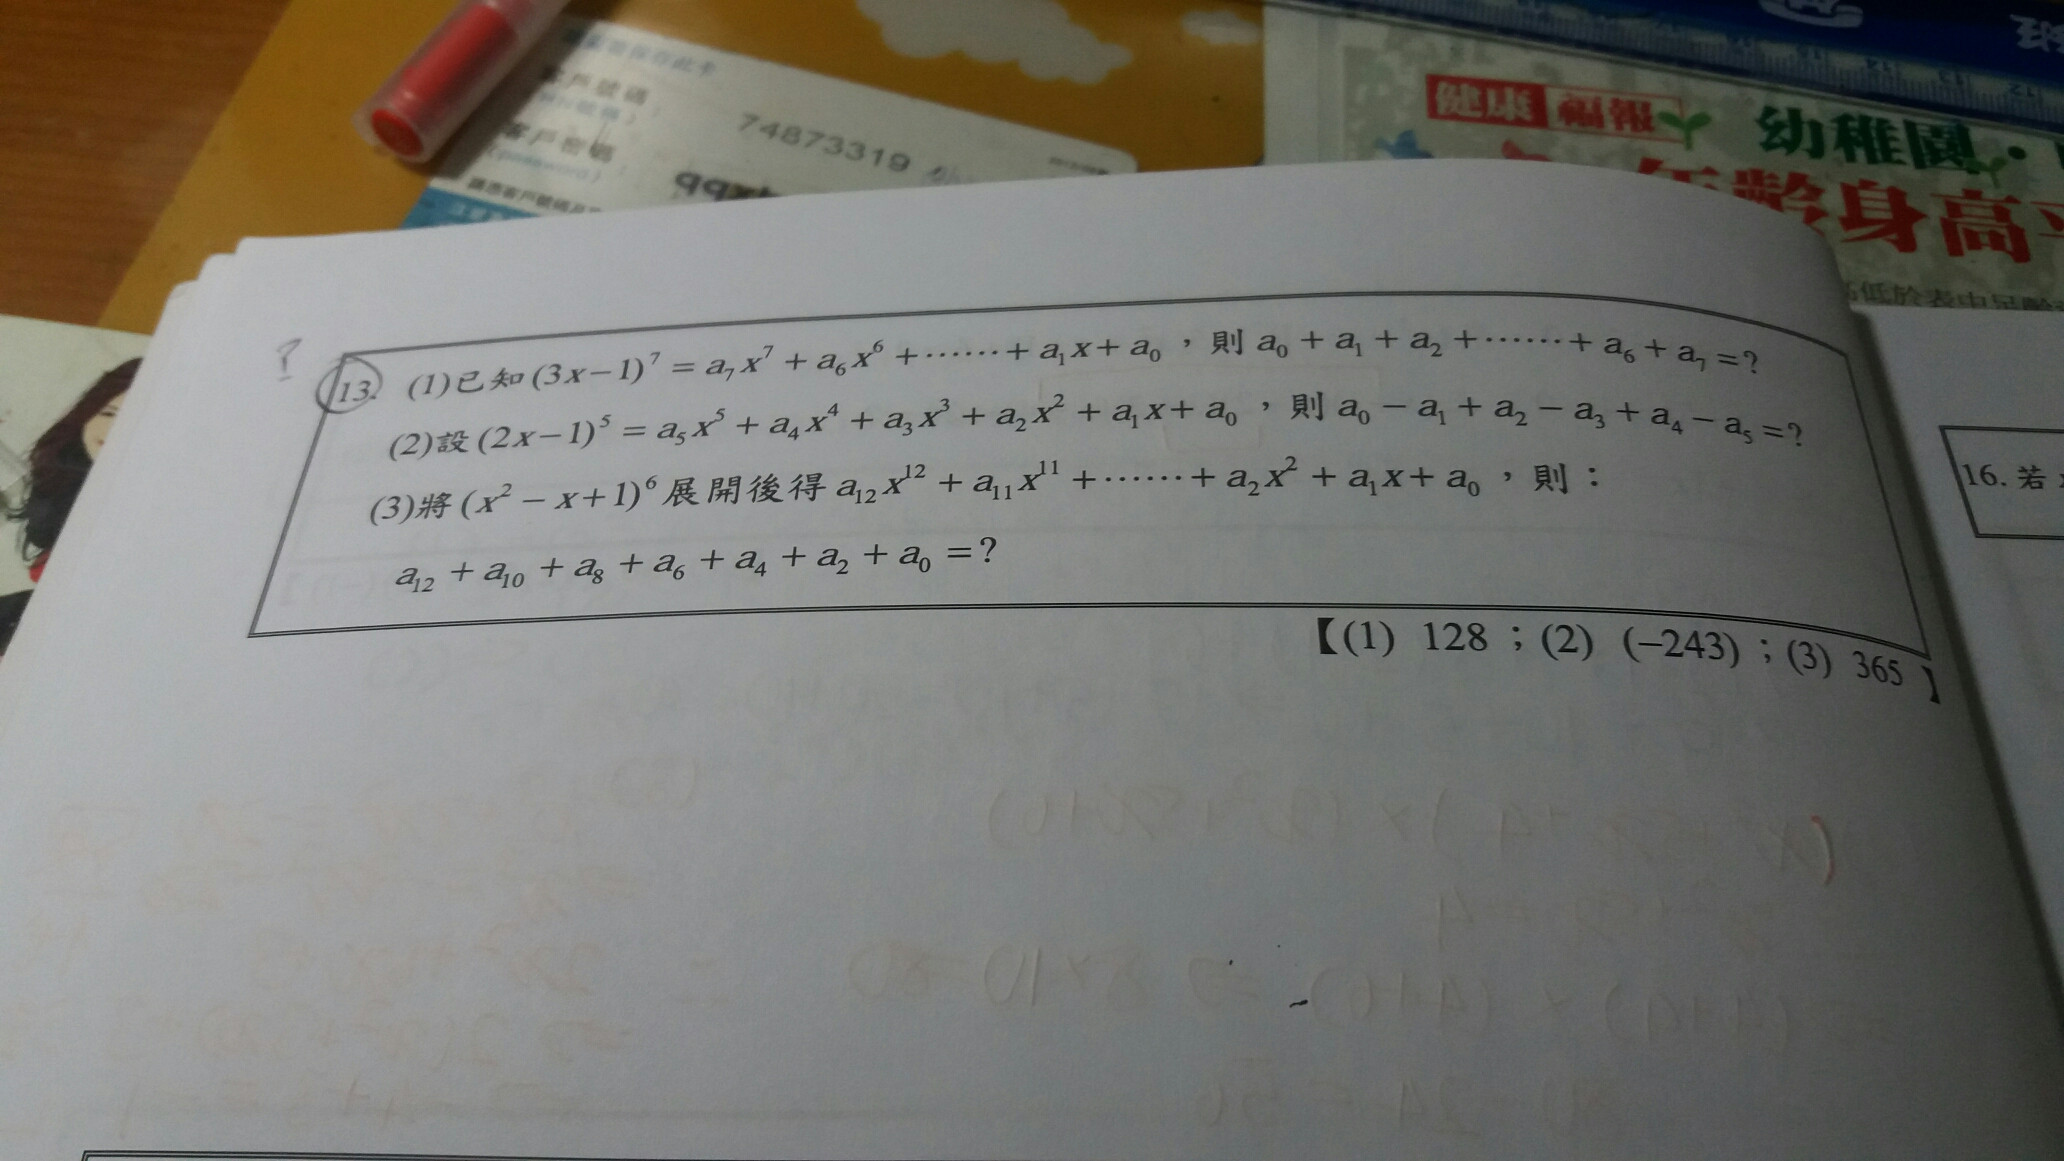 客戶號碼
74873319
客戶密碼
健康 福報
幼稚園・
年齡身高
低於表中足齡
?
13. (1)已知(3x−1)⁷ = a₇x⁷ + a₆x⁶ +⋯⋯+ a₁x + a₀，則 a₀ + a₁ + a₂ +⋯⋯+ a₆ + a₇ =?
(2)設(2x−1)⁵ = a₅x⁵ + a₄x⁴ + a₃x³ + a₂x² + a₁x + a₀，則 a₀ − a₁ + a₂ − a₃ + a₄ − a₅ =?
(3)將(x² − x+1)⁶展開後得 a₁₂x¹² + a₁₁x¹¹ +⋯⋯+ a₂x² + a₁x + a₀，則：
a₁₂ + a₁₀ + a₈ + a₆ + a₄ + a₂ + a₀ =?
【(1) 128；(2) (−243)；(3) 365】
16. 若